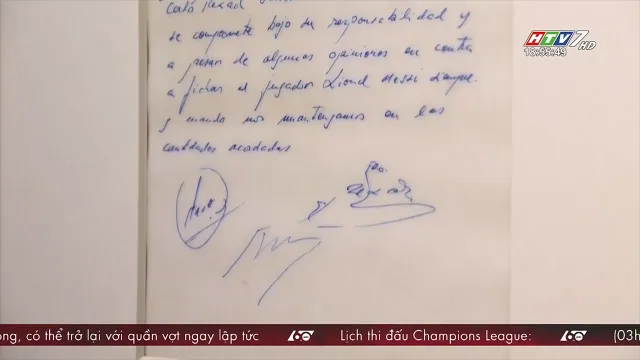 HTV7 HD
18:55:49
se compromete bajo su responsabilidad y
a pesar de algunas opiniones en contra
a fichar al jugador Lionel Messi siempre
y cuando nos mantengamos en las
cantidades acordadas
ong, có thể trở lại với quần vợt ngay lập tức 60 Lịch thi đấu Champions League: 60 (03h